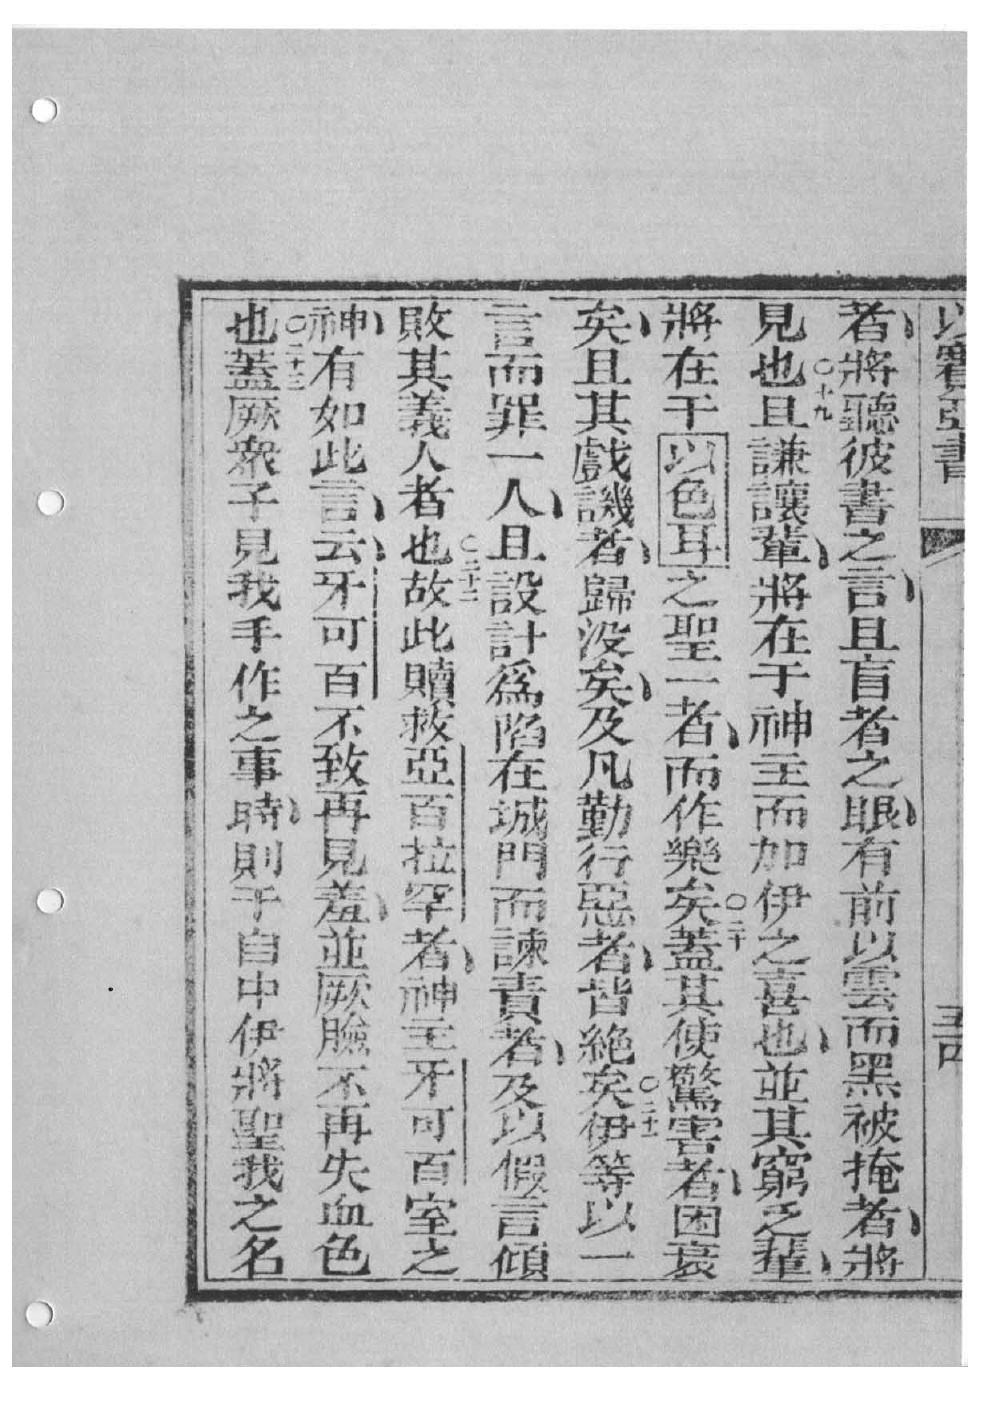 以賽亞書
者將聽彼書之言且盲者之眼有前以雲而黑被掩者將
見也○十九且謙讓輩將在于神主而加伊之喜也並其窮乏輩
將在于以色耳之聖一者而作樂矣○二十蓋其使驚害者困衰
矣且其戲譏者歸沒矣及凡勤行惡者皆絕矣○二十一伊等以一
言而罪一人且設計為陷在城門而諫責者及以假言傾
敗其義人者也○二十二故此贖救亞百拉罕者神主牙可百室之
神有如此言云牙可百不致再見羞並厥臉不再失血色
也○二十三蓋厥衆子見我手作之事時則于自中伊將聖我之名